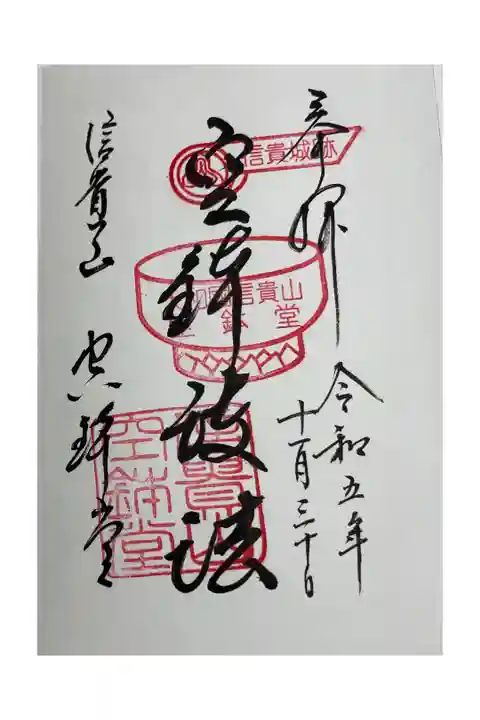 奉拝
令和五年
十一月三十日
空鉢護法
信貴山
空鉢堂
信貴城跡
信貴山
鉢堂
信貴山
空鉢堂